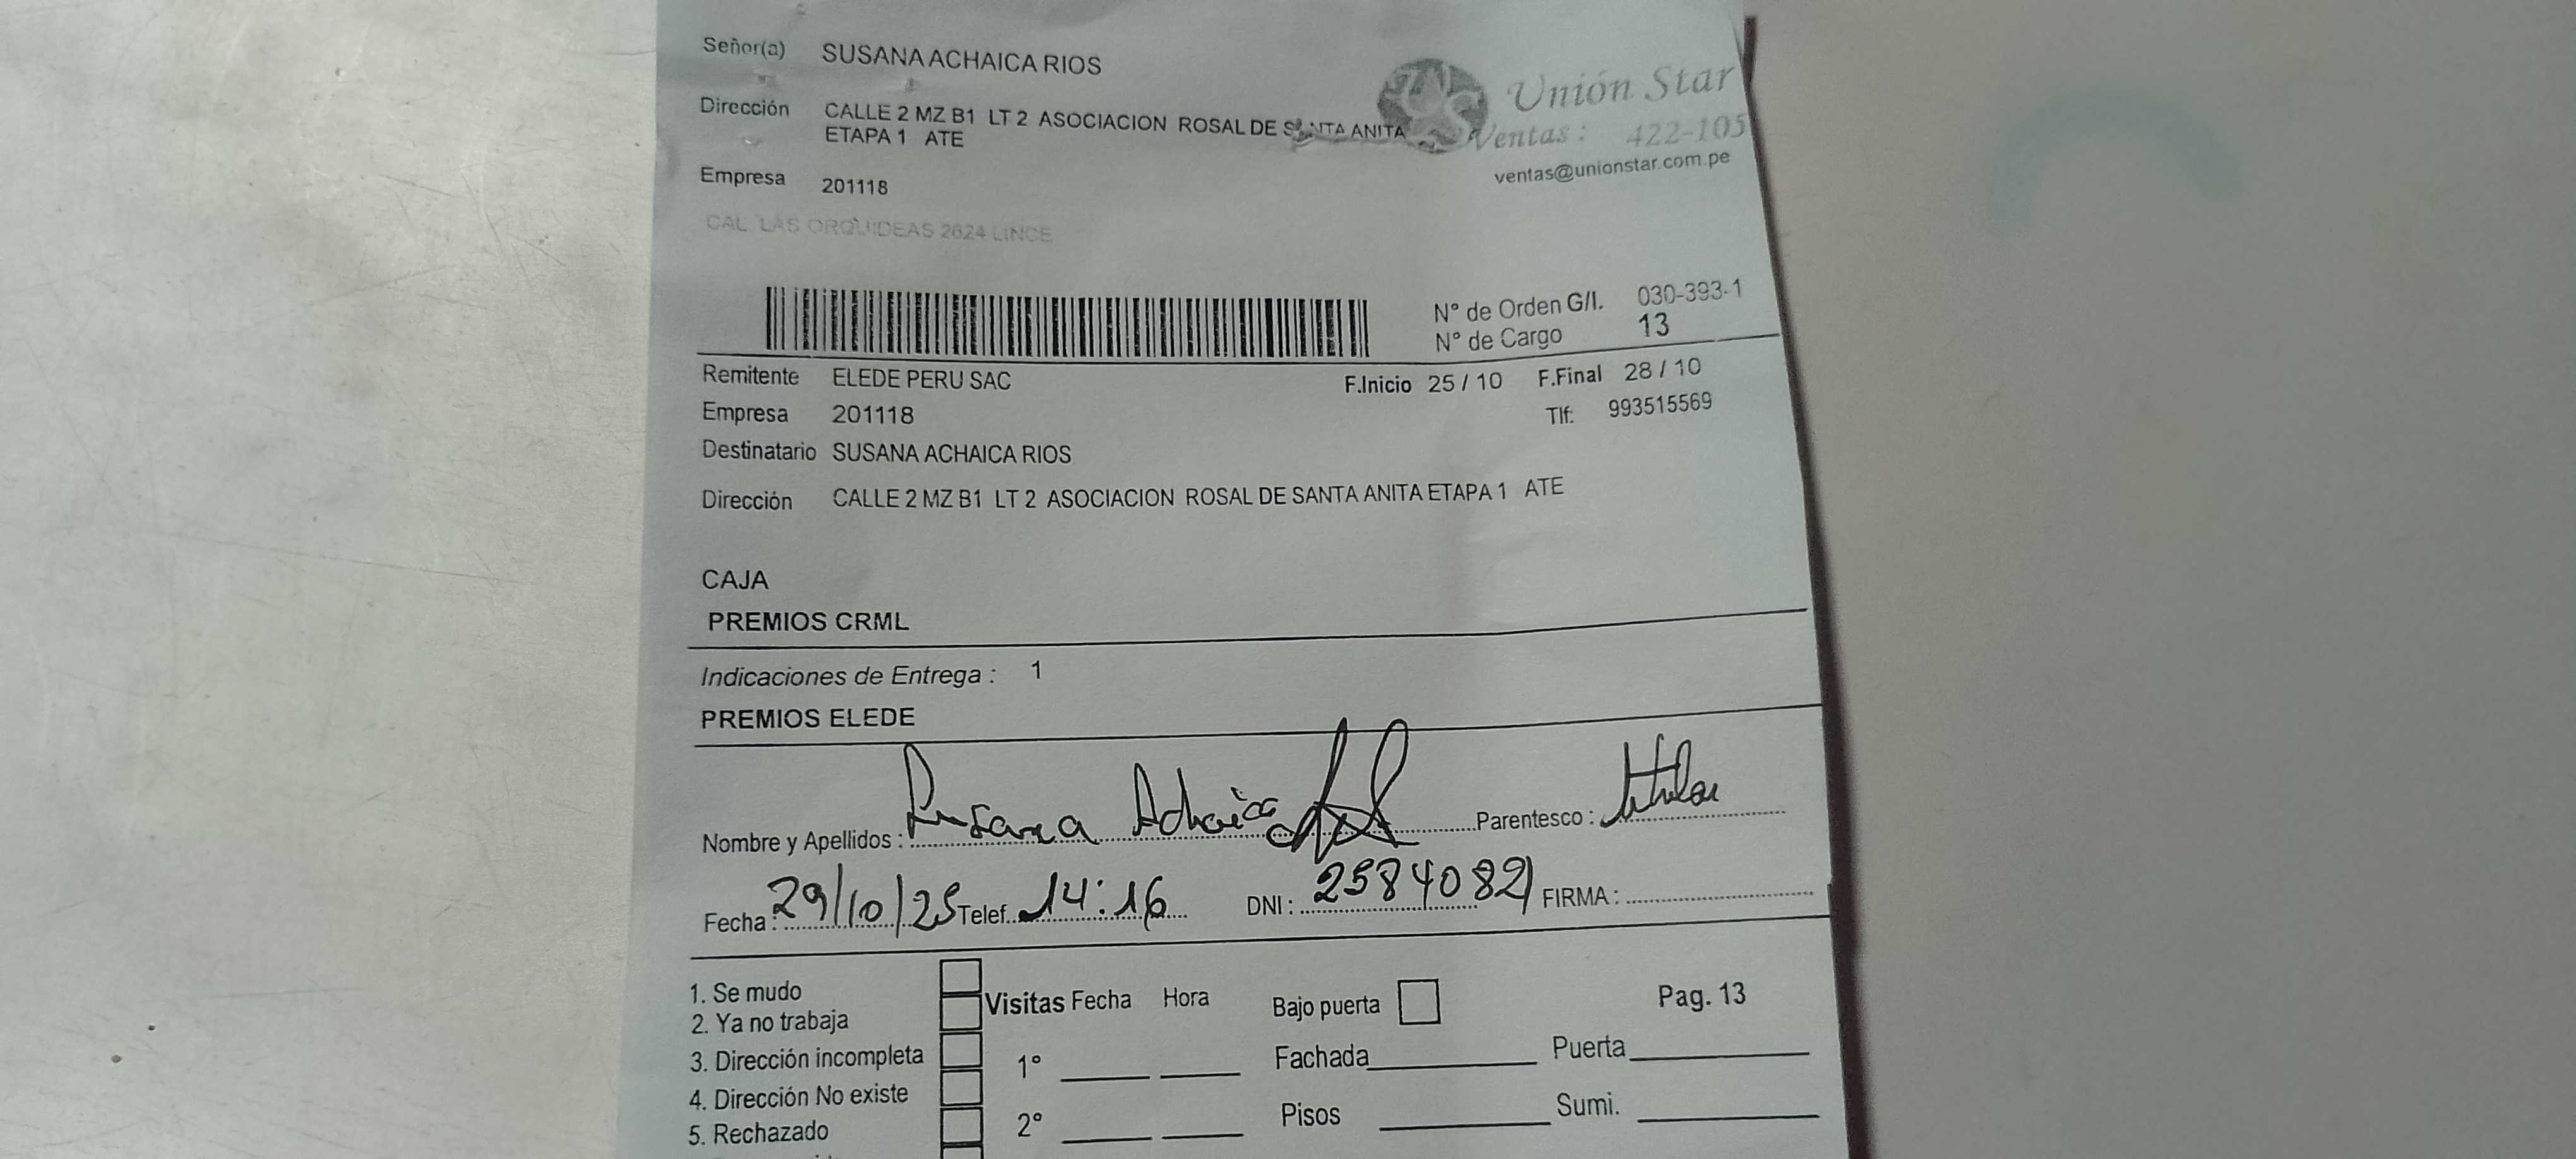 Señor(a) SUSANA ACHAICA RIOS
Unión Star
Dirección CALLE 2 MZ B1 LT 2 ASOCIACION ROSAL DE SANTA ANITA
ETAPA 1 ATE
Ventas: 422-105
ventas@unionstar.com.pe
Empresa 201118
CAL. LAS ORQUIDEAS 2624 LINCE
N° de Orden G/I. 030-393-1
N° de Cargo 13
Remitente ELEDE PERU SAC F.Inicio 25 / 10 F.Final 28 / 10
Empresa 201118 Tlf: 993515569
Destinatario SUSANA ACHAICA RIOS
Dirección CALLE 2 MZ B1 LT 2 ASOCIACION ROSAL DE SANTA ANITA ETAPA 1 ATE
CAJA
PREMIOS CRML
Indicaciones de Entrega : 1
PREMIOS ELEDE
Nombre y Apellidos : Susana Achaica Parentesco : titular
Fecha : 29/10/25 Telef. 14:16 DNI : 25840821 FIRMA :
1. Se mudo
2. Ya no trabaja
3. Dirección incompleta
4. Dirección No existe
5. Rechazado
Visitas Fecha Hora
1°
2°
Bajo puerta
Pag. 13
Fachada Puerta
Pisos Sumi.